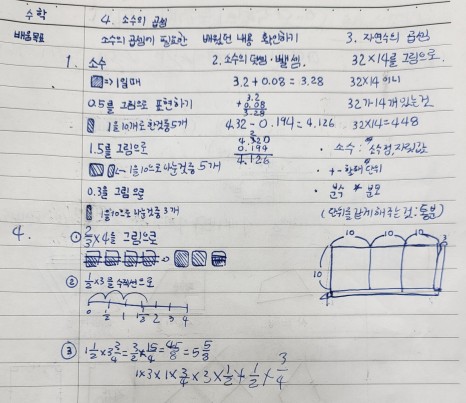 수학
4. 소수의 곱셈
배움목표
소수의 곱셈에 필요한 배웠던 내용 확인하기
1. 소수
⇒ 1일때
0.5를 그림으로 표현하기
1을 10개로 한것중 5개
1.5를 그림으로
1을 10으로 나눈것중 5개
0.3을 그림으로
1을 10으로 나눈것중 3개
2. 소수의 덧셈·뺄셈
3.2 + 0.08 = 3.28
3.2
+ 0.08
3.28
4.32 - 0.194 = 4.126
4.320
0.194
4.126
3. 자연수의 곱셈
32×14를 그림으로
32×14 이니
32가 14개 있는것
32×14=448
· 소수 : 소수점, 자릿값
· + -
단위
· 분수 * 분모
(단위를 같게 해주는 것 : 통분)
4.
① 2/3 × 4를 그림으로
10 10 10
3
10
4
② 1/2 × 3을 수직선으로
0 1/2 1 1 1/2 2 3 4
③ 1 1/2 × 3 3/4 = 3/2 × 15/4 = 45/8 = 5 5/8
1×3 × 1×3/4 × 3×1/2 + 1/2 × 3/4